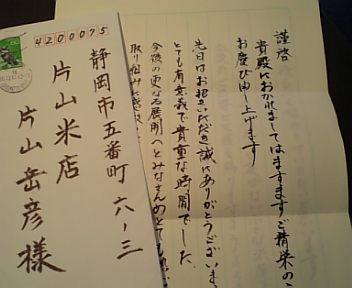 4200075
静岡市五番町六ー三
片山米店
片山岳彦様
謹啓
貴殿におかれましてはますますご精栄の
お慶び申し上げます
先日はお招きいただき誠にありがとうございま
とても有意義で貴重な時間でした。
今後の更なる展開へとみなさんの
取り組みに